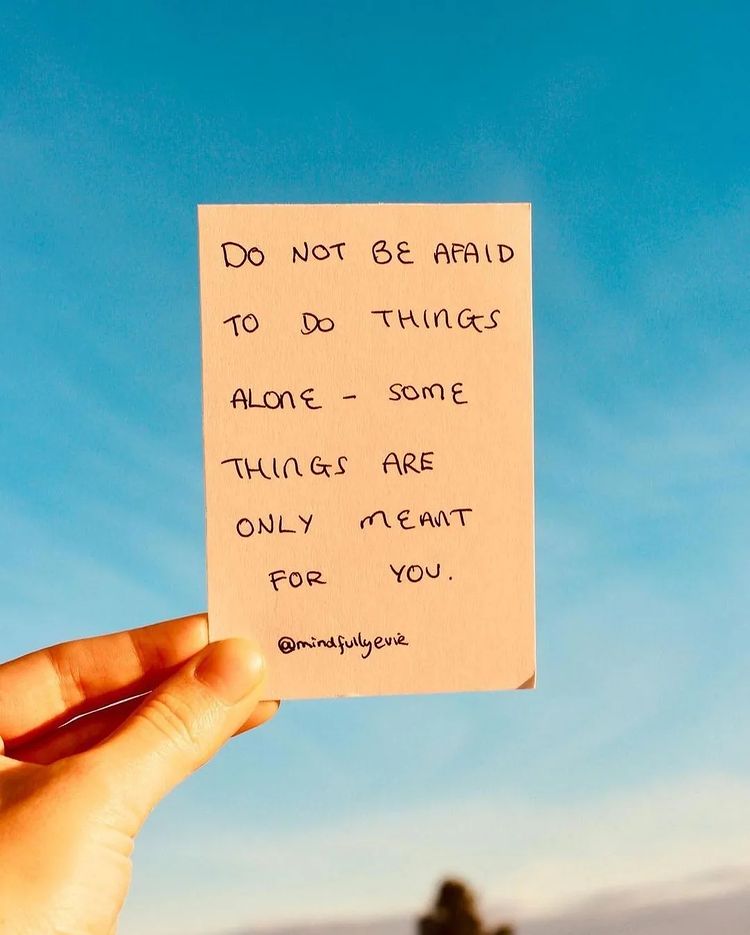 DO NOT BE AFAID
TO DO THINGS
ALONE - SOME
THINGS ARE
ONLY MEANT
FOR YOU.
@mindfullyevie